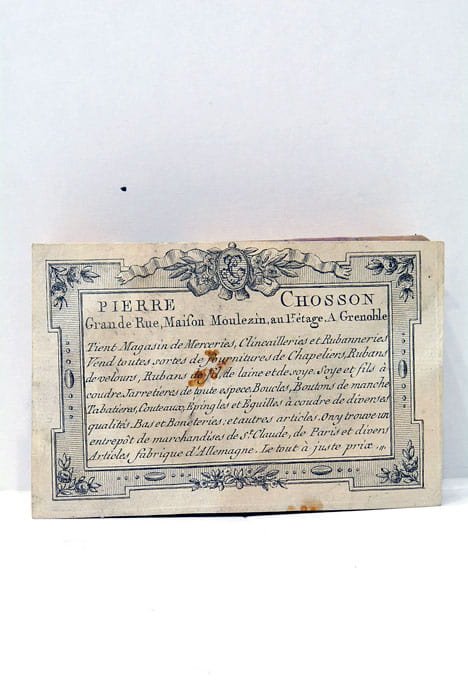 PIERRE CHOSSON
Grande Rue, Maiſon Moulezin, au 1er étage, A Grenoble
Tient Magasin de Merceries, Clincailleries et Rubanneries
Vend toutes sortes de fournitures de Chapeliers, Rubans
de velours, Rubans de fil, de laine et de soye. Soye et fils à
coudre. Jarretieres de toute espece. Boucles, Boutons de manche
Tabatieres, Couteaux, Epingles et Eguilles à coudre de diverses
qualités. Bas et Boneteries, et autres articles. On y trouve un
entrepôt de marchandises de St. Claude, de Paris et divers
Articles fabrique d'Allemagne. Le tout à juste prix.